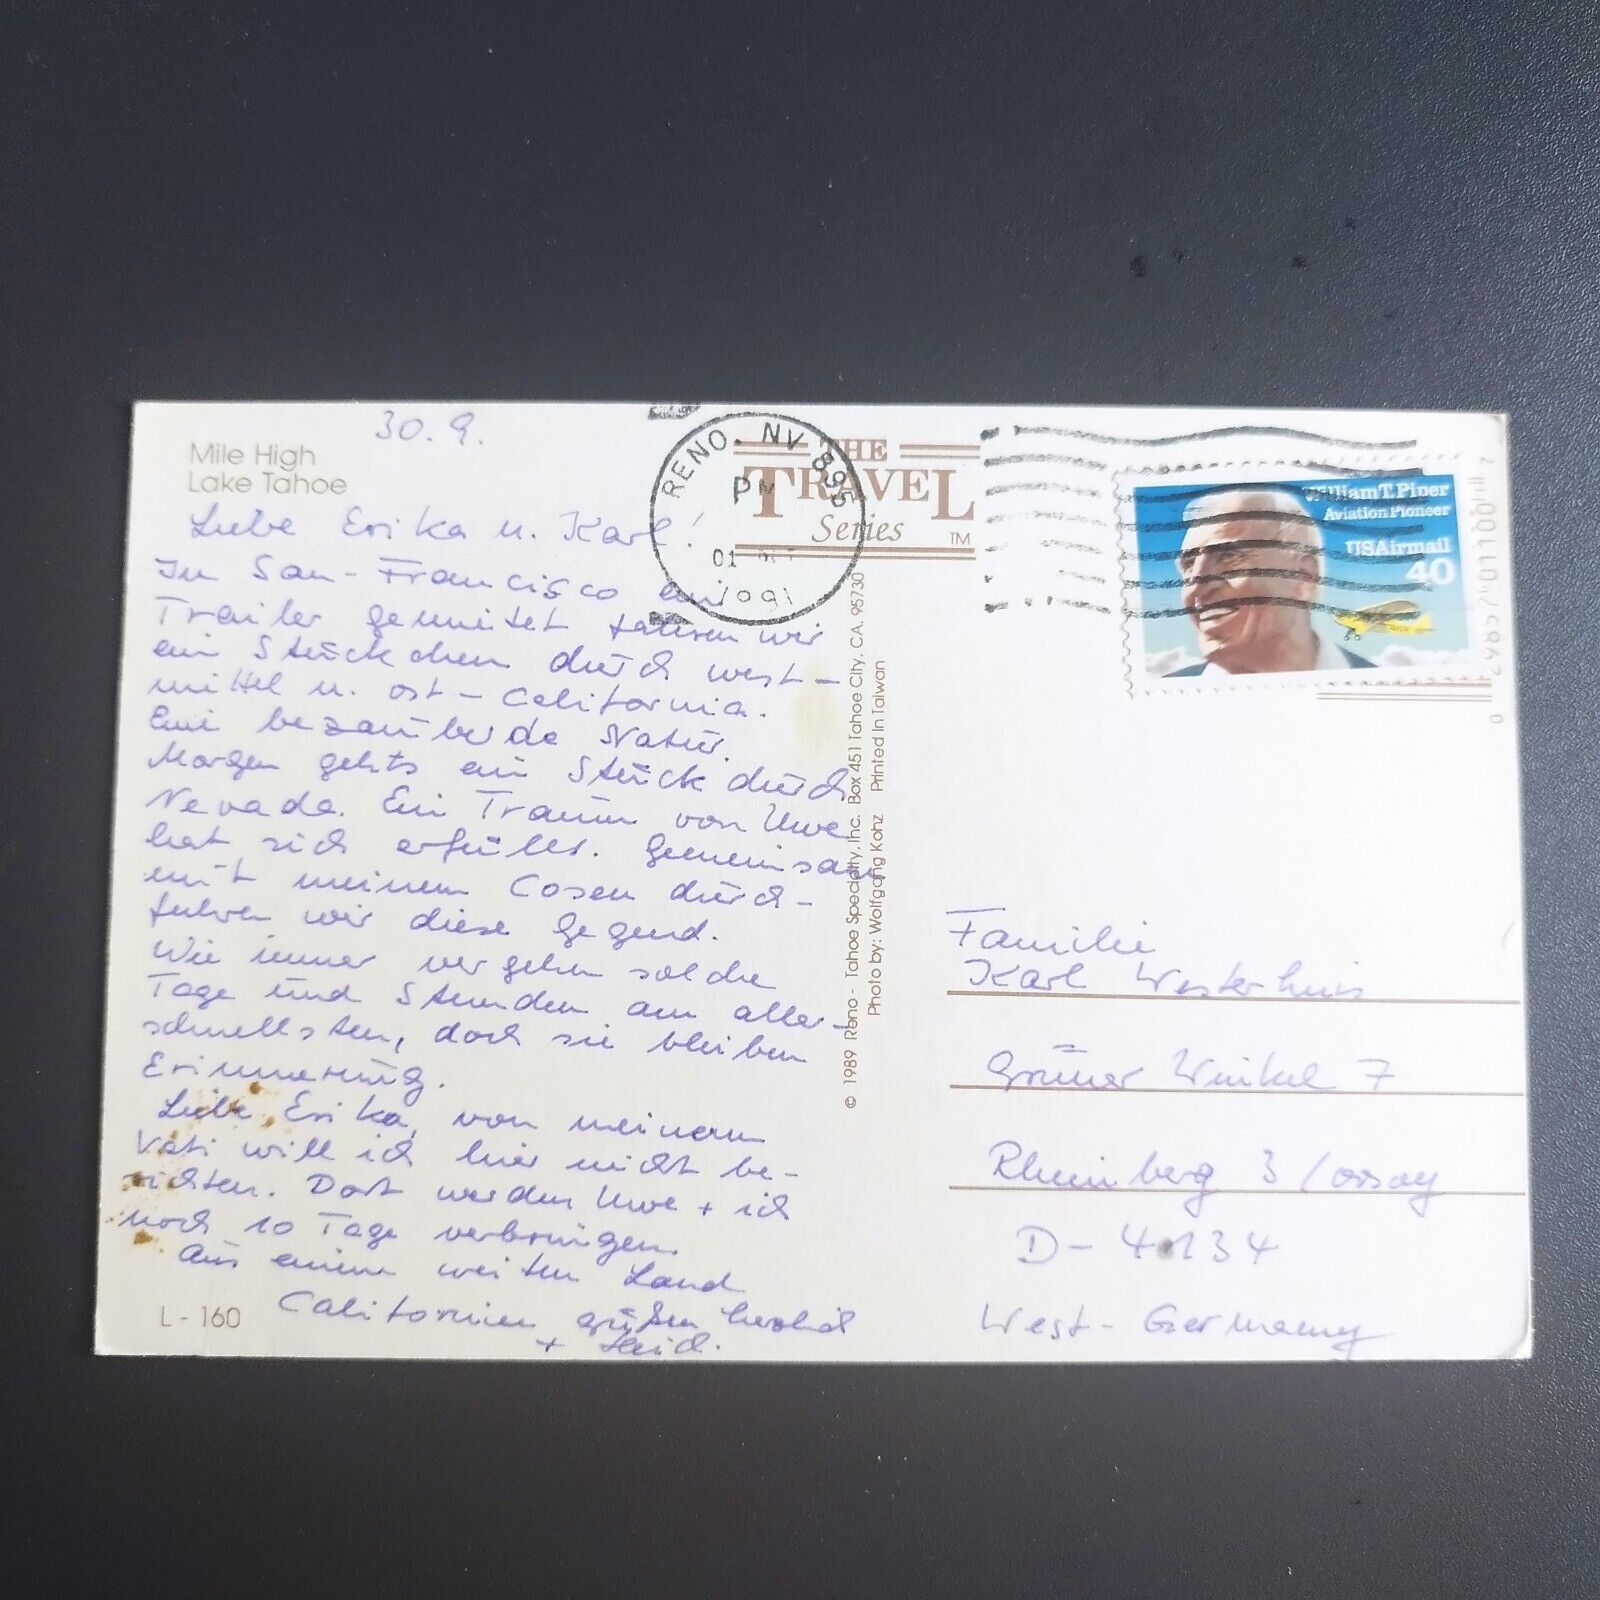 30.9.
Mile High
Lake Tahoe
Liebe Erika u. Karl!
In San-Francisco ein
Trailer gemietet fahren wir
ein Stückchen durch west-
mittel u. ost-California.
Eine bezaubernde Natur.
Morgen gehts ein Stück durch
Nevada. Ein Traum von Uwe
hat sich erfüllt. Gemeinsam
mit meinem Cosen durch-
fahren wir diese Gegend.
Wie immer vergehen solche
Tage und Stunden am aller-
schnellsten, doch sie bleiben
Erinnerung.
Liebe Erika, von meinem
Vati will ich hier nicht be-
richten. Dort werden Uwe + ich
noch 10 Tage verbringen.
Aus einem weiten Land
Californien grüßen herzlich
+ Heid.
L-160
RENO, NV 895
PM
01
1991
THE
TRAVEL
Series
TM
© 1989 Reno - Tahoe Specialty, Inc. Box 451 Tahoe City, CA. 95730
Photo by: Wolfgang Kohz Printed In Taiwan
William T. Piper
Aviation Pioneer
USAirmail
40
Familie
Karl Westerhuis
Grüner Winkel 7
Rheinberg 3 / Orsoy
D-4134
West-Germany